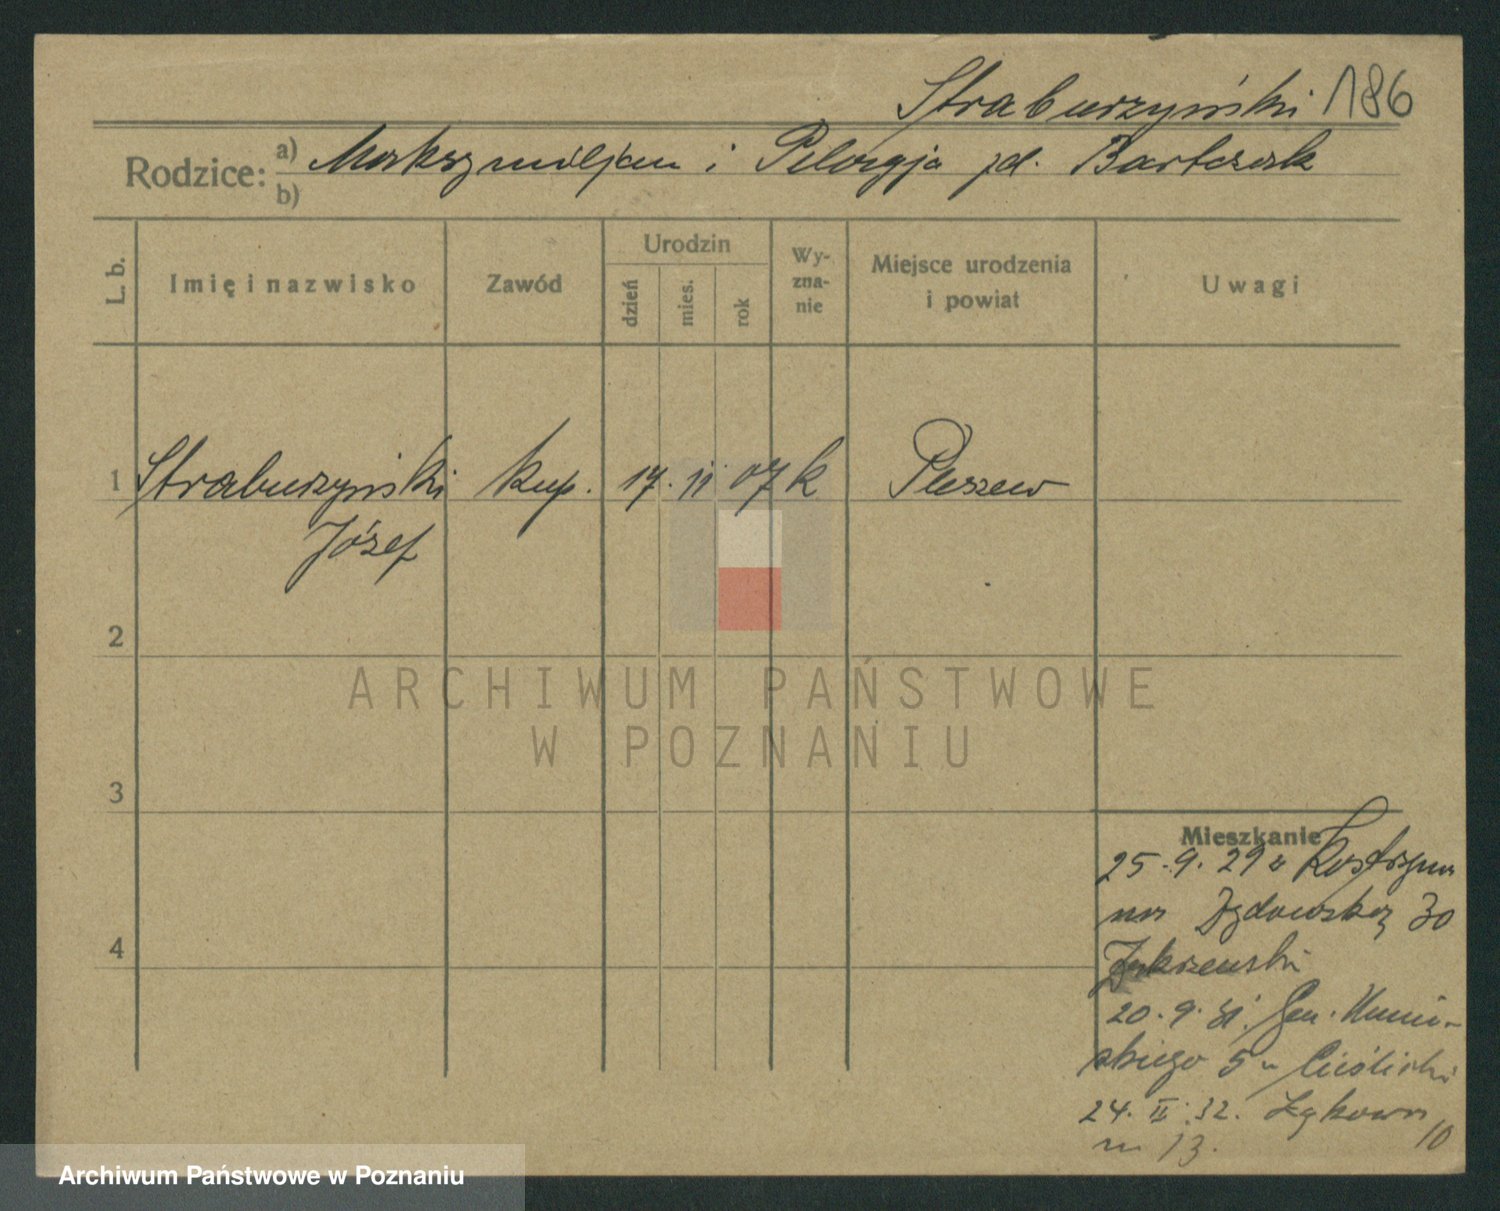 Straburzyński 186
Rodzice: a) Maksymiljan i Pelagja zd. Bartczak
b)
L. b.
Imię i nazwisko
Zawód
Urodzin
dzień
mies.
rok
Wy-
zna-
nie
Miejsce urodzenia
i powiat
Uwagi
1 Straburzyński kup. 17. 11 07 k Pleszew
Józef
2
ARCHIWUM PAŃSTWOWE
W POZNANIU
3
Mieszkanie
25.9.29 z Kostrzyna
na Żydowską 30
Zakrzewski
20.9.31. Gen.
skiego 5 u Cieślicki
24. II. 32. Łąkowa 10
m 13.
4
Archiwum Państwowe w Poznaniu